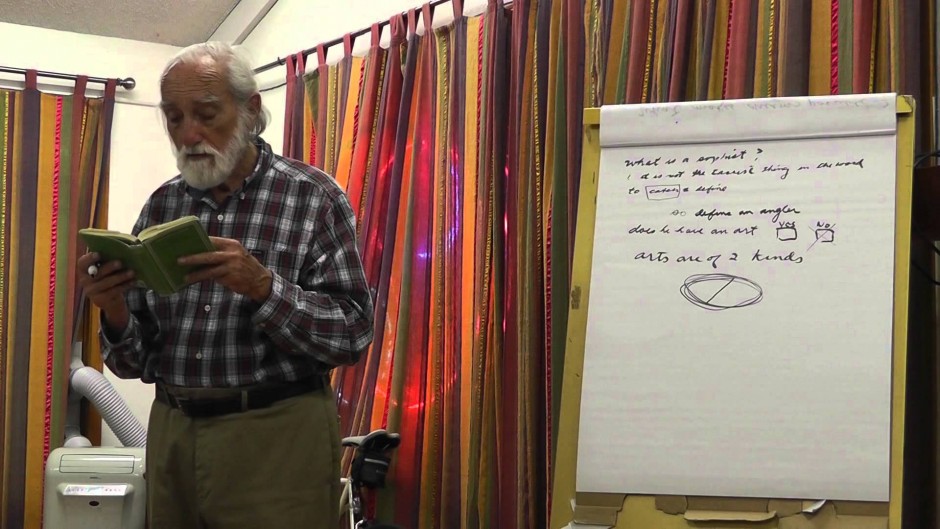 What is a sophist?
( it is not the easiest thing in the world
to catch = define
so define an angler
does he have an art Yes No
arts are of 2 kinds